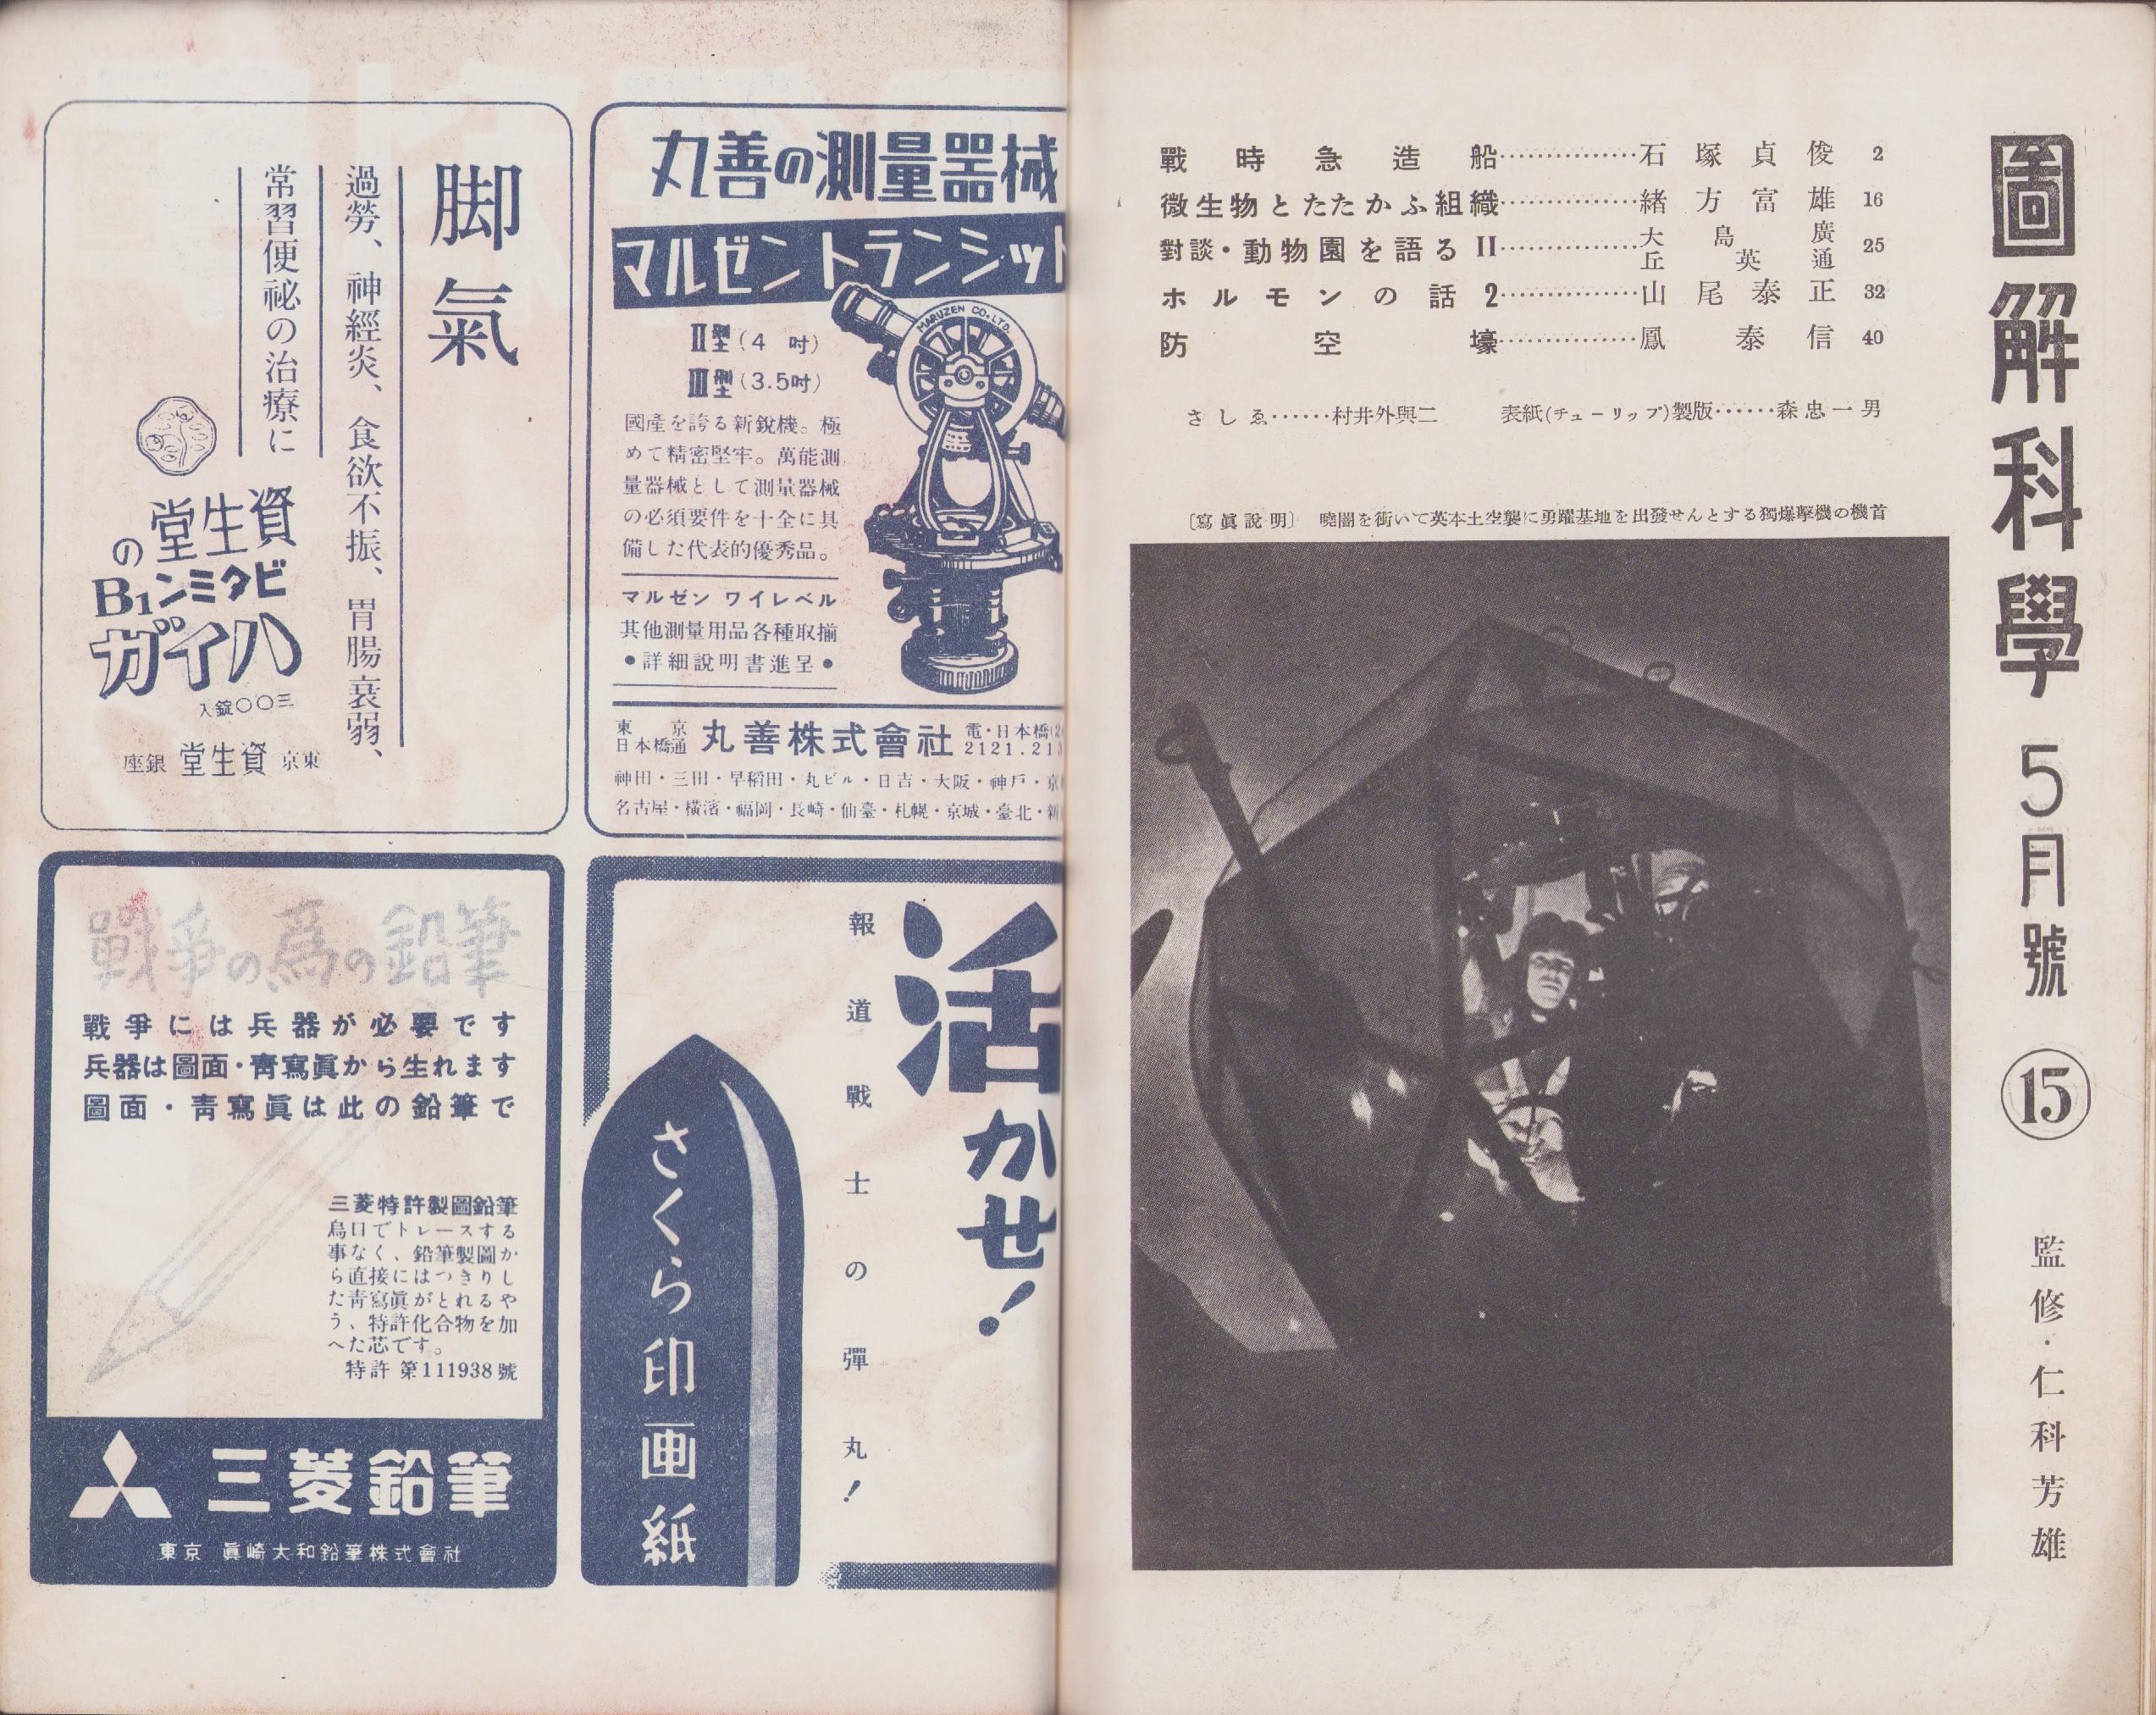 圖解科學 5月號 ⑮ 監修・仁科芳雄
戰時急造船……………石塚貞俊 2
微生物とたたかふ組織……………緒方富雄 16
對談・動物園を語る II……………大島廣 丘英通 25
ホルモンの話 2……………山尾泰正 32
防空壕……………鳳泰信 40
さしゑ……村井外與二 表紙(チューリップ)製版……森忠一男
〔寫眞說明〕 曉闇を衝いて英本土空襲に勇躍基地を出發せんとする獨爆擊機の機首
丸善の測量器械
マルゼントランシット
MARUZEN CO.LTD.
II型(4吋)
III型(3.5吋)
國產を誇る新銳機。極
めて精密堅牢。萬能測
量器械として測量器械
の必須要件を十全に具
備した代表的優秀品。
マルゼン ワイレベル
其他測量用品各種取揃
●詳細說明書進呈●
東京
日本橋通
丸善株式會社
電・日本橋(2
2121.21
神田・三田・早稻田・丸ビル・日吉・大阪・神戶・京
名古屋・橫濱・福岡・長崎・仙臺・札幌・京城・臺北・新
脚氣
過勞、神經炎、食欲不振、胃腸衰弱、
常習便祕の治療に
資生堂の
ビタミンB1
ハイガ
三〇〇錠入
東京 資生堂 銀座
活かせ!
報道戰士の彈丸!
さくら印画紙
戰爭の爲の鉛筆
戰爭には兵器が必要です
兵器は圖面・靑寫眞から生れます
圖面・靑寫眞は此の鉛筆で
三菱特許製圖鉛筆
烏口でトレースする
事なく、鉛筆製圖か
ら直接にはつきりし
た靑寫眞がとれるや
う、特許化合物を加
へた芯です。
特許 第111938號
三菱鉛筆
東京 眞崎大和鉛筆株式會社